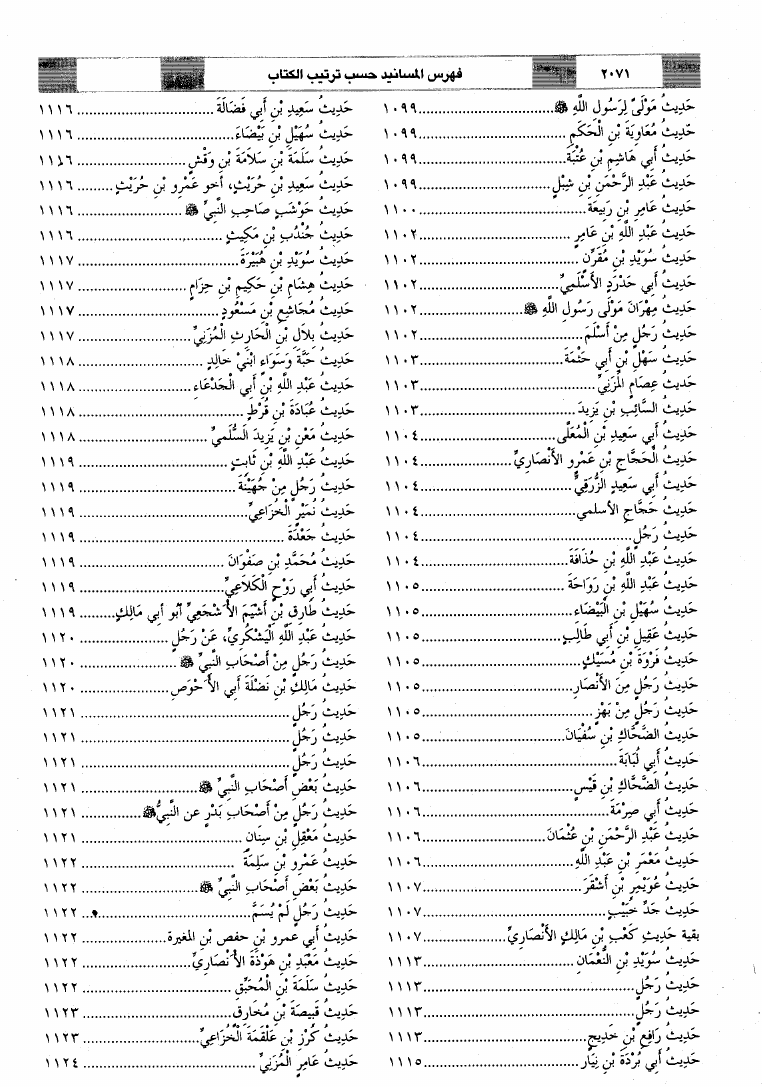 ٢٠٧١
فهرس المسانيد حسب ترتيب الكتاب
حَدِيثُ مَوْلَىً لِرَسُولِ اللَّهِ ﷺ ........ ١٠٩٩
حَدِيثُ مُعَاوِيَةَ بْنِ الْحَكَمِ ........ ١٠٩٩
حَدِيثُ أَبِي هَاشِمِ بْنِ عُتْبَةَ ........ ١٠٩٩
حَدِيثُ عَبْدِ الرَّحْمَنِ بْنِ شِبْلٍ ........ ١٠٩٩
حَدِيثُ عَامِرِ بْنِ رَبِيعَةَ ........ ١١٠٠
حَدِيثُ عَبْدِ اللَّهِ بْنِ عَامِرٍ ........ ١١٠٢
حَدِيثُ سُوَيْدِ بْنِ مُقَرِّنٍ ........ ١١٠٢
حَدِيثُ أَبِي حَدْرَدٍ الأَسْلَمِيِّ ........ ١١٠٢
حَدِيثُ مِهْرَانَ مَوْلَى رَسُولِ اللَّهِ ﷺ ........ ١١٠٢
حَدِيثُ رَجُلٍ مِنْ أَسْلَمَ ........ ١١٠٢
حَدِيثُ سَهْلِ بْنِ أَبِي حَثْمَةَ ........ ١١٠٣
حَدِيثُ عِصَامٍ الْمُزَنِيِّ ........ ١١٠٣
حَدِيثُ السَّائِبِ بْنِ يَزِيدَ ........ ١١٠٣
حَدِيثُ أَبِي سَعِيدِ بْنِ الْمُعَلَّى ........ ١١٠٤
حَدِيثُ الْحَجَّاجِ بْنِ عَمْرٍو الأَنْصَارِيِّ ........ ١١٠٤
حَدِيثُ أَبِي سَعِيدٍ الزُّرَقِيِّ ........ ١١٠٤
حَدِيثُ حَجَّاجٍ الأسلمي ........ ١١٠٤
حَدِيثُ رَجُلٍ ........ ١١٠٤
حَدِيثُ عَبْدِ اللَّهِ بْنِ حُذَافَةَ ........ ١١٠٤
حَدِيثُ عَبْدِ اللَّهِ بْنِ رَوَاحَةَ ........ ١١٠٥
حَدِيثُ سُهَيْلِ بْنِ الْبَيْضَاءِ ........ ١١٠٥
حَدِيثُ عَقِيلِ بْنِ أَبِي طَالِبٍ ........ ١١٠٥
حَدِيثُ فَرْوَةَ بْنِ مُسَيْكٍ ........ ١١٠٥
حَدِيثُ رَجُلٍ مِنَ الأَنْصَارِ ........ ١١٠٥
حَدِيثُ رَجُلٍ مِنْ بَهْزٍ ........ ١١٠٥
حَدِيثُ الضَّحَّاكِ بْنِ سُفْيَانَ ........ ١١٠٥
حَدِيثُ أَبِي لُبَابَةَ ........ ١١٠٦
حَدِيثُ الضَّحَّاكِ بْنِ قَيْسٍ ........ ١١٠٦
حَدِيثُ أَبِي صِرْمَةَ ........ ١١٠٦
حَدِيثُ عَبْدِ الرَّحْمَنِ بْنِ عُثْمَانَ ........ ١١٠٦
حَدِيثُ مَعْمَرِ بْنِ عَبْدِ اللَّهِ ........ ١١٠٦
حَدِيثُ عُوَيْمِرِ بْنِ أَشْقَرَ ........ ١١٠٧
حَدِيثُ جَدِّ خُبَيْبٍ ........ ١١٠٧
بقية حَدِيثِ كَعْبِ بْنِ مَالِكٍ الأَنْصَارِيِّ ........ ١١٠٧
حَدِيثُ سُوَيْدِ بْنِ النُّعْمَانِ ........ ١١١٣
حَدِيثُ رَجُلٍ ........ ١١١٣
حَدِيثُ رَجُلٍ ........ ١١١٣
حَدِيثُ رَافِعِ بْنِ خَدِيجٍ ........ ١١١٣
حَدِيثُ أَبِي بُرْدَةَ بْنِ نِيَارٍ ........ ١١١٥
حَدِيثُ سَعِيدِ بْنِ أَبِي فَضَالَةَ ........ ١١١٦
حَدِيثُ سُهَيْلِ بْنِ بَيْضَاءَ ........ ١١١٦
حَدِيثُ سَلَمَةَ بْنِ سَلاَمَةَ بْنِ وَقْشٍ ........ ١١١٦
حَدِيثُ سَعِيدِ بْنِ حُرَيْثٍ، أَخو عَمْرِو بْنِ حُرَيْثٍ ........ ١١١٦
حَدِيثُ حَوْشَبٍ صَاحِبِ النَّبِيِّ ﷺ ........ ١١١٦
حَدِيثُ جُنْدُبِ بْنِ مَكِيثٍ ........ ١١١٦
حَدِيثُ سُوَيْدِ بْنِ هُبَيْرَةَ ........ ١١١٧
حَدِيثُ هِشَامِ بْنِ حَكِيمِ بْنِ حِزَامٍ ........ ١١١٧
حَدِيثُ مُجَاشِعِ بْنِ مَسْعُودٍ ........ ١١١٧
حَدِيثُ بِلاَلِ بْنِ الْحَارِثِ الْمُزَنِيِّ ........ ١١١٧
حَدِيثُ حَبَّةَ وَسَوَاءَ ابْنَيْ خَالِدٍ ........ ١١١٨
حَدِيثُ عَبْدِ اللَّهِ بْنِ أَبِي الْجَدْعَاءِ ........ ١١١٨
حَدِيثُ عُبَادَةَ بْنِ قُرْطٍ ........ ١١١٨
حَدِيثُ مَعْنِ بْنِ يَزِيدَ السُّلَمِيِّ ........ ١١١٨
حَدِيثُ عَبْدِ اللَّهِ بْنِ ثَابِتٍ ........ ١١١٩
حَدِيثُ رَجُلٍ مِنْ جُهَيْنَةَ ........ ١١١٩
حَدِيثُ نُمَيْرٍ الْخُزَاعِيِّ ........ ١١١٩
حَدِيثُ جَعْدَةَ ........ ١١١٩
حَدِيثُ مُحَمَّدِ بْنِ صَفْوَانَ ........ ١١١٩
حَدِيثُ أَبِي رَوْحٍ الْكَلاَعِيِّ ........ ١١١٩
حَدِيثُ طَارِقِ بْنِ أَشْيَمَ الأَشْجَعِيِّ أَبُو أبي مَالِكٍ ........ ١١١٩
حَدِيثُ عَبْدِ اللَّهِ الْيَشْكُرِيِّ، عَنْ رَجُلٍ ........ ١١٢٠
حَدِيثُ رَجُلٍ مِنْ أَصْحَابِ النَّبِيِّ ﷺ ........ ١١٢٠
حَدِيثُ مَالِكِ بْنِ نَضْلَةَ أَبِي الأَحْوَصِ ........ ١١٢٠
حَدِيثُ رَجُلٍ ........ ١١٢١
حَدِيثُ رَجُلٍ ........ ١١٢١
حَدِيثُ رَجُلٍ ........ ١١٢١
حَدِيثُ بَعْضِ أَصْحَابِ النَّبِيِّ ﷺ ........ ١١٢١
حَدِيثُ رَجُلٍ مِنْ أَصْحَابِ بَدْرٍ عن النَّبِيِّ ﷺ ........ ١١٢١
حَدِيثُ مَعْقِلِ بْنِ سِنَان ........ ١١٢١
حَدِيثُ عَمْرِو بْنِ سَلِمَةَ ........ ١١٢٢
حَدِيثُ بَعْضِ أَصْحَابِ النَّبِيِّ ﷺ ........ ١١٢٢
حَدِيثُ رَجُلٍ لَمْ يُسَمَّ ........ ١١٢٢
حَدِيثُ أَبي عمرو بن حفص بن المغيرة ........ ١١٢٢
حَدِيثُ مَعْبَدِ بْنِ هَوْذَةَ الأَنْصَارِيِّ ........ ١١٢٢
حَدِيثُ سَلَمَةَ بْنِ الْمُحَبِّقِ ........ ١١٢٢
حَدِيثُ قَبِيصَةَ بْنِ مُخَارِقٍ ........ ١١٢٣
حَدِيثُ كُرْزِ بْنِ عَلْقَمَةَ الْخُزَاعِيِّ ........ ١١٢٣
حَدِيثُ عَامِرٍ الْمُزَنِيِّ ........ ١١٢٤